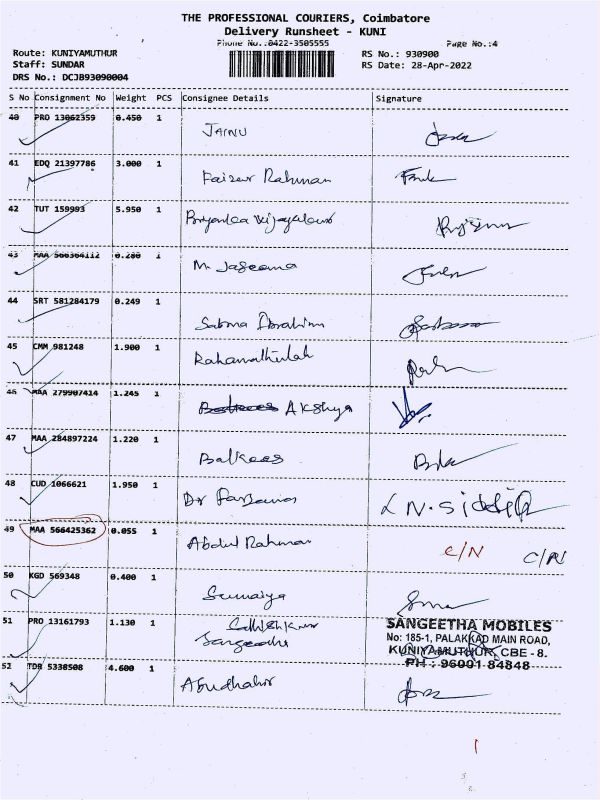 THE PROFESSIONAL COURIERS, Coimbatore
Delivery Runsheet - KUNI
Phone No.:0422-3505555 Page No.:4
Route: KUNIYAMUTHUR RS No.: 930900
Staff: SUNDAR RS Date: 28-Apr-2022
DRS No.: DCJB93090004
S No Consignment No Weight PCS Consignee Details Signature
40 PRO 13062359 0.450 1
JAINU
41 EDQ 21397786 3.000 1
Faizur Rahman
42 TUT 159993 5.950 1
Priyanka
43 MAA 566364112 0.280 1
M. Jaseema
44 SRT 581284179 0.249 1
Sabma Ibrahim
45 CMM 981248 1.900 1
Rahamathulah
46 MAA 279907414 1.245 1
Balkees Akshya
47 MAA 284897224 1.220 1
Balkees
48 CUD 1066621 1.950 1
Dr N. Siddiq
49 MAA 566425362 0.055 1
Abdul Rahman C/N C/N
50 KGD 569348 0.400 1
Sumaiya
51 PRO 13161793 1.130 1
Sangeetha
SANGEETHA MOBILES
No: 185-1, PALAKKAD MAIN ROAD,
KUNIYAMUTHUR, CBE - 8.
PH : 96001 84848
52 TDR 5338508 4.600 1
Abudhahir